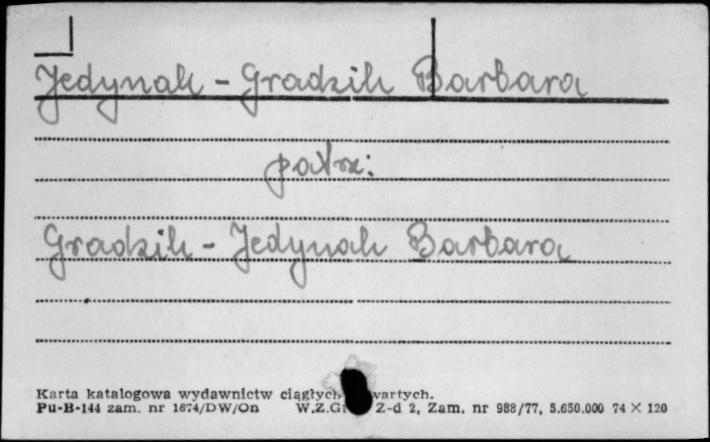 Jedynak - Gradzik Barbara
patrz:
Gradzik - Jedynak Barbara
Karta katalogowa wydawnictw ciągłych
Pu-B-144 zam. nr 1674/DW/On W.Z.G Z-d 2, Zam. nr 988/77, 5.650.000 74 × 120